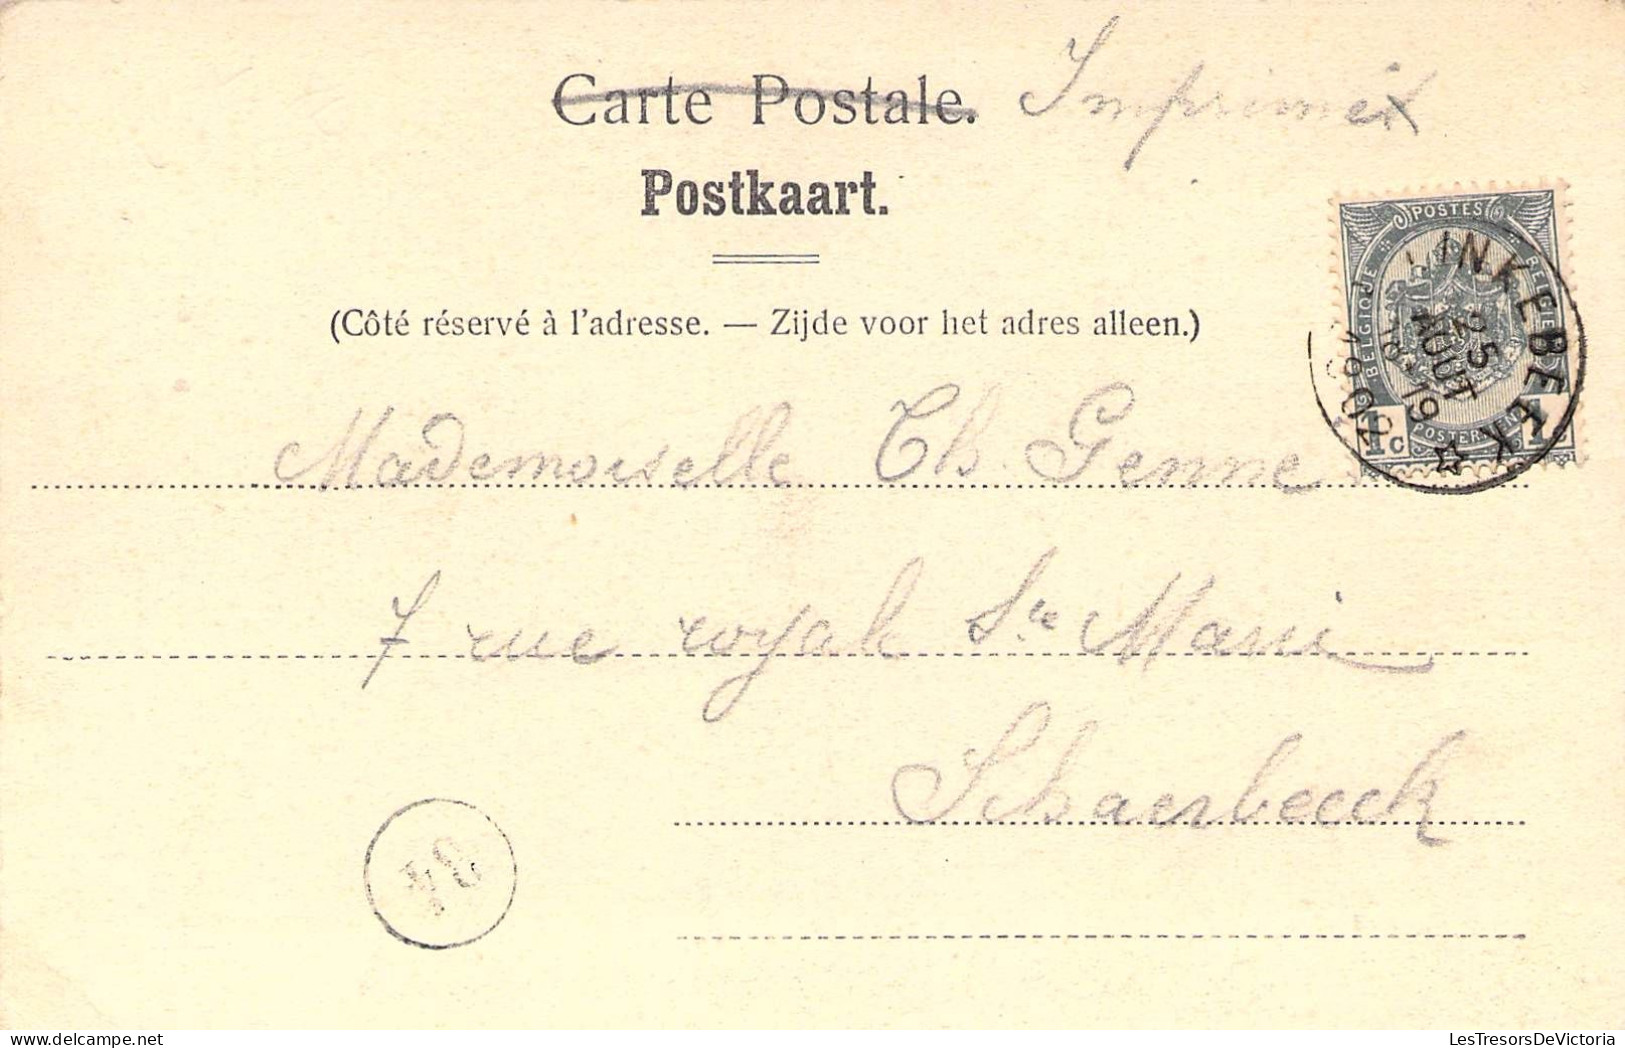 Carte Postale. Imprimé
Postkaart.
(Côté réservé à l'adresse. — Zijde voor het adres alleen.)
POSTES
BELGIQUE BELGIE
POSTERIJEN
1c
INKEBEEK
25
AOUT
19
1902
Mademoiselle Ch. Genne
7 rue royale Ste Marie
Schaerbeeck
34
LesTresorsDeVictoria